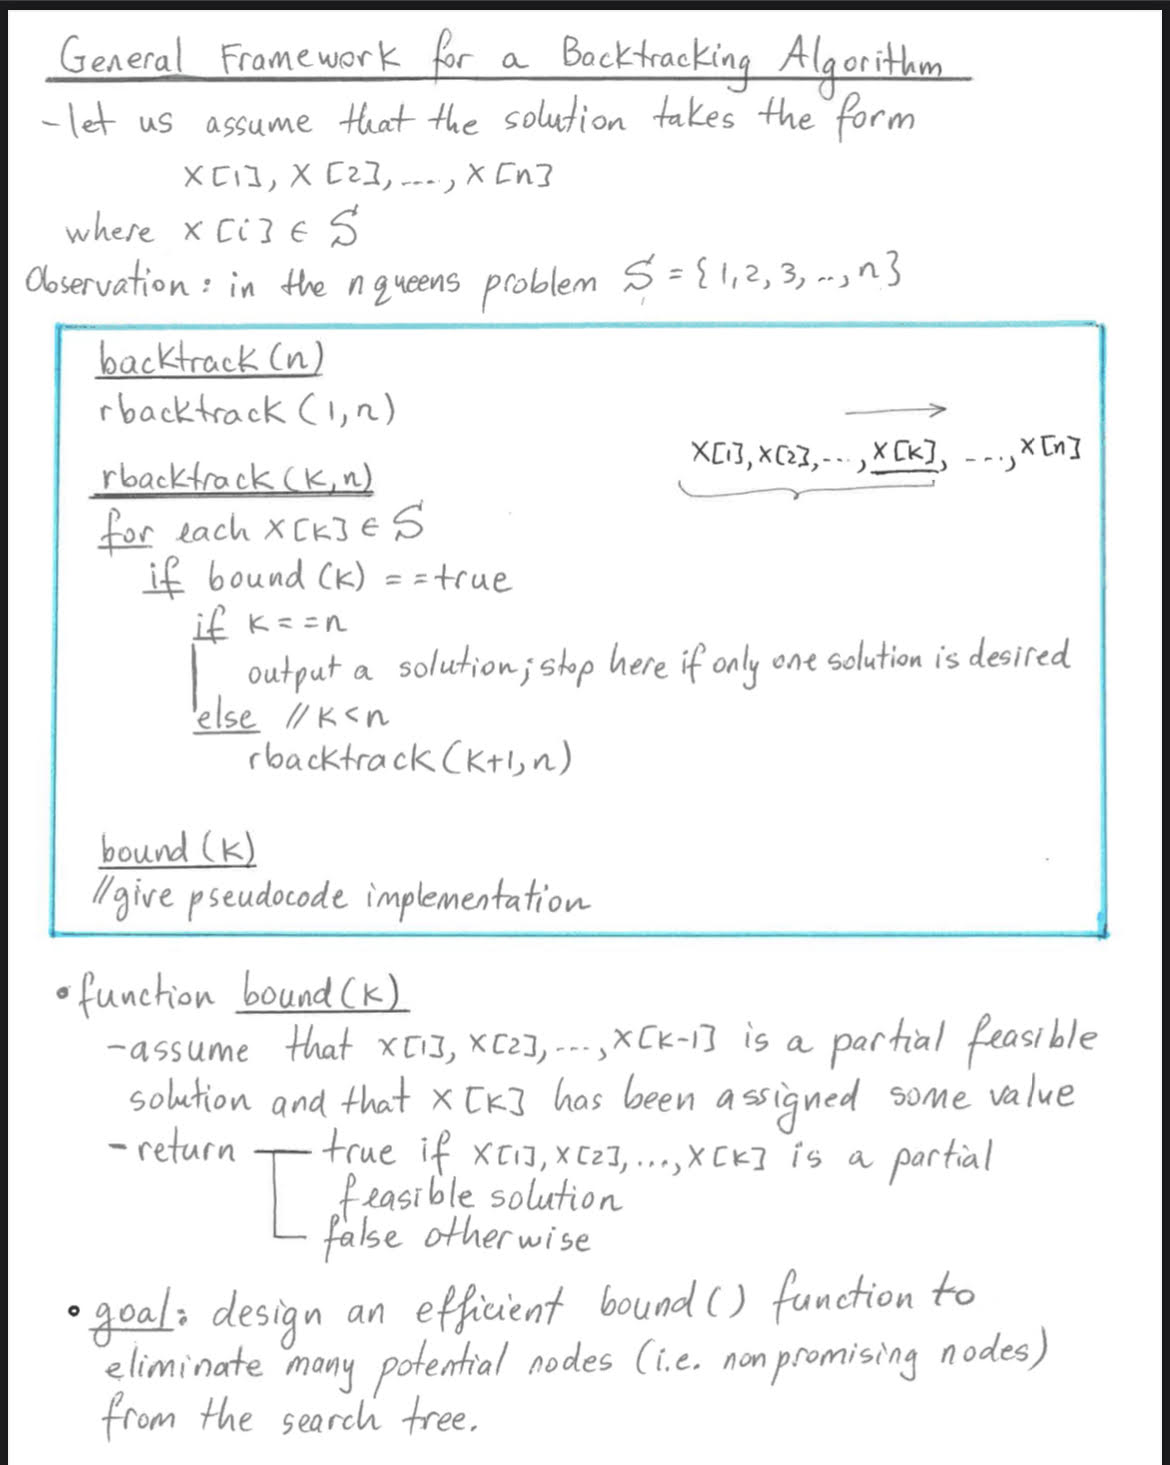 General Framework for a Backtracking Algorithm
-let us assume that the solution takes the form
X[1], X[2],...., X[n]
where X[i] ∈ S
Observation: in the n queens problem S = {1,2,3,..,n}
backtrack(n)
rbacktrack(1,n)
X[1],X[2],...,X[k], ....,X[n]
rbacktrack(k,n)
for each X[k] ∈ S
if bound(k) ==true
if k==n
output a solution; stop here if only one solution is desired
else //k<n
rbacktrack(k+1,n)
bound(k)
//give pseudocode implementation
• function bound(k)
-assume that X[1], X[2],...,X[k-1] is a partial feasible
solution and that X[k] has been assigned some value
-return true if X[1],X[2],...,X[k] is a partial
feasible solution
false otherwise
• goal: design an efficient bound() function to
eliminate many potential nodes (i.e. nonpromising nodes)
from the search tree.